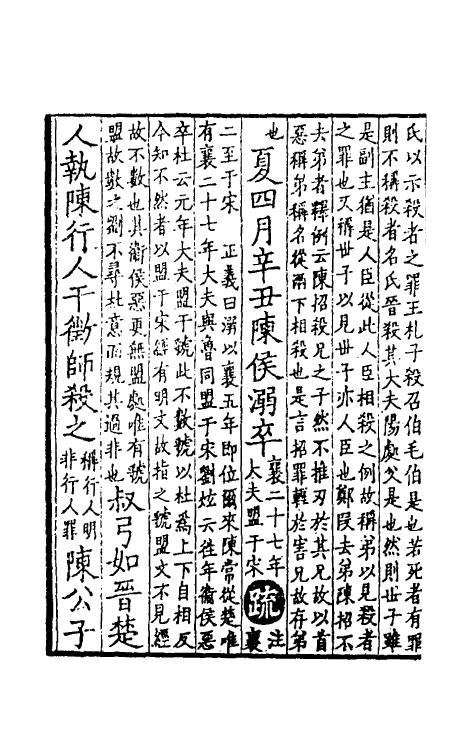 氏以示殺者之罪王札子殺召伯毛伯是也若死者有罪
則不稱殺者名氏晉殺其大夫陽處父是也然則世子雖
是副主猶是人臣從此人臣相殺之例故稱弟以見殺者
之罪也又稱世子以見世子亦人臣也鄭段去弟陳招不
去弟者釋例云陳招殺兄之子然不推刃於其兄故以首
惡稱弟稱名從兩下相殺也是言招罪輕於害兄故存弟
也夏四月辛丑陳侯溺卒襄二十七年大夫盟于宋疏注襄
二至于宋 正義曰溺以襄五年即位爾來陳常從楚唯
有襄二十七年大夫與魯同盟于宋劉炫云往年衞侯惡
卒杜云元年大夫盟于虢此不數虢以杜爲上下自相反
今知不然者以盟于宋經有明文故指之虢盟文不見經
故不數也其衞侯惡更無盟處唯有虢
盟故數之劉不尋杜意而規其過非也叔弓如晉楚
人執陳行人干徵師殺之稱行人明非行人罪陳公子